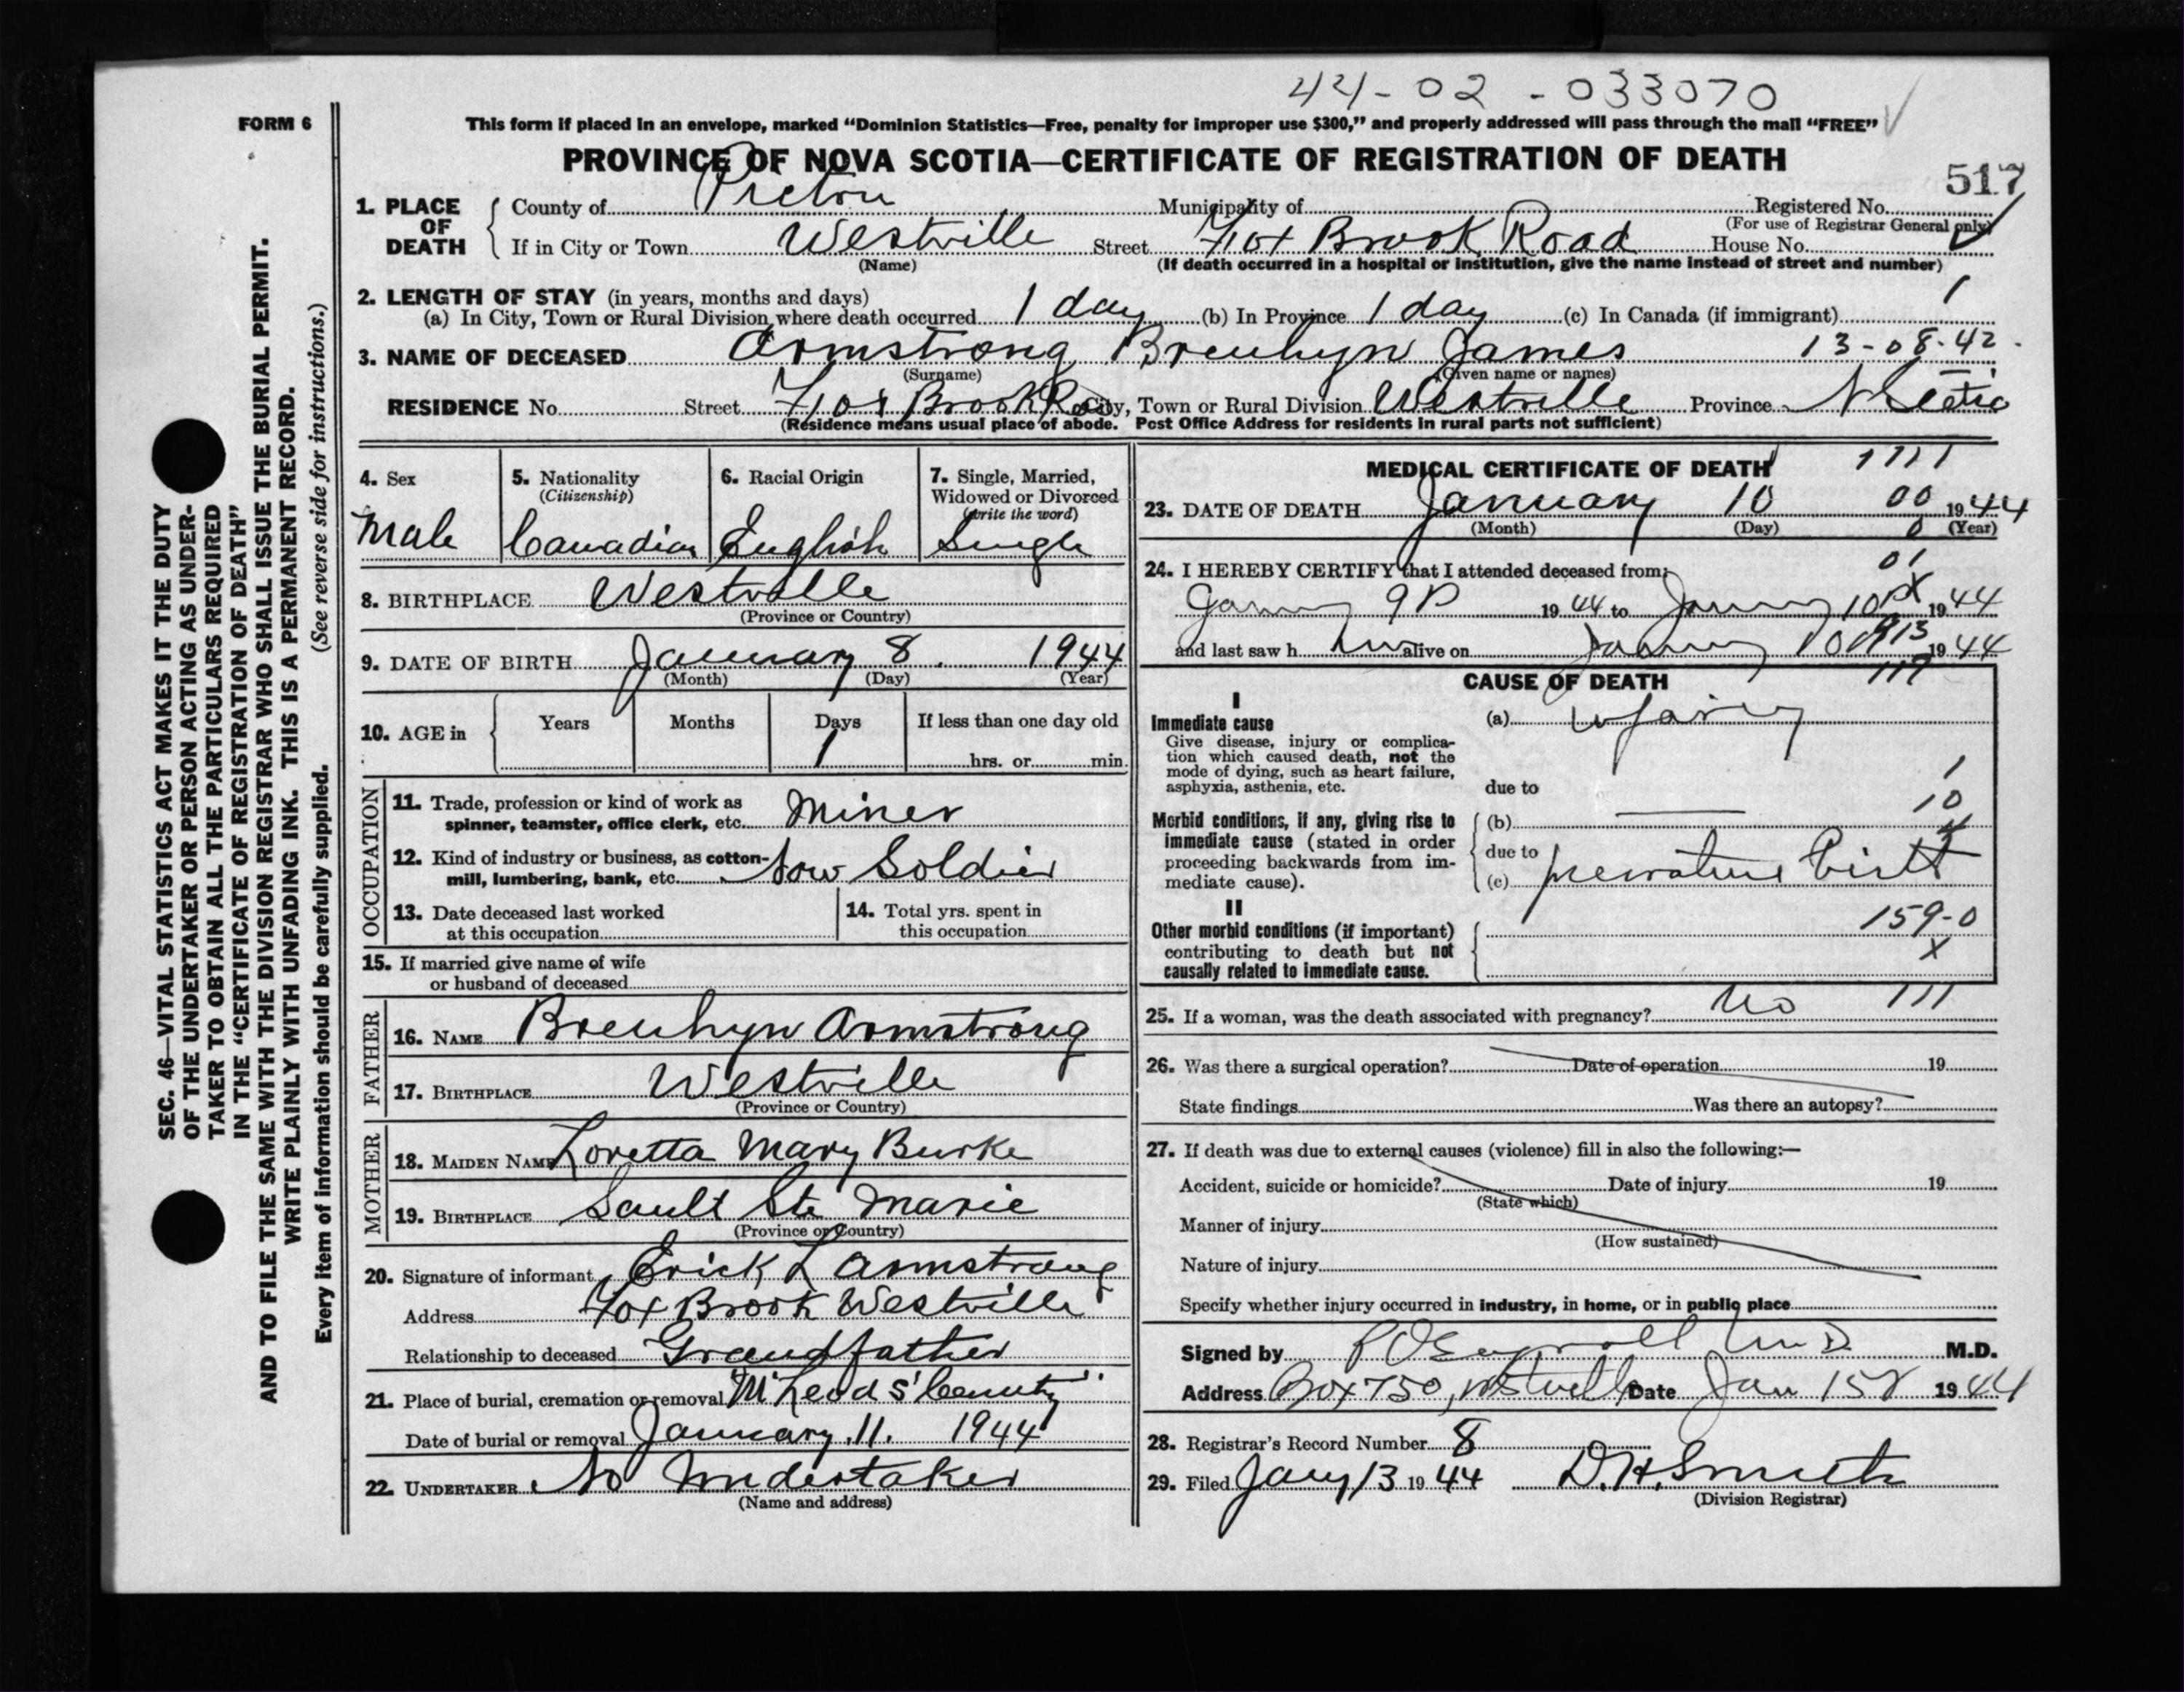 44-02-033070
FORM 6
This form if placed in an envelope, marked “Dominion Statistics—Free, penalty for improper use $300,” and properly addressed will pass through the mail “FREE”
PROVINCE OF NOVA SCOTIA—CERTIFICATE OF REGISTRATION OF DEATH
517
1. PLACE OF DEATH County of Pictou Municipality of Registered No.
(For use of Registrar General only)
If in City or Town Westville Street Fox Brook Road House No.
(Name) (If death occurred in a hospital or institution, give the name instead of street and number)
2. LENGTH OF STAY (in years, months and days) 1
(a) In City, Town or Rural Division where death occurred 1 day (b) In Province 1 day (c) In Canada (if immigrant)
3. NAME OF DECEASED Armstrong Brenhyn James 13-08-42
(Surname) (Given name or names)
RESIDENCE No. Street Fox Brook Road City, Town or Rural Division Westville Province N Scotia
(Residence means usual place of abode. Post Office Address for residents in rural parts not sufficient)
4. Sex Male
5. Nationality (Citizenship) Canadian
6. Racial Origin English
7. Single, Married, Widowed or Divorced (write the word) Single
8. BIRTHPLACE Westville
(Province or Country)
9. DATE OF BIRTH January 8. 1944
(Month) (Day) (Year)
10. AGE in Years Months Days If less than one day old
1 hrs. or min.
OCCUPATION
11. Trade, profession or kind of work as
spinner, teamster, office clerk, etc. Miner
12. Kind of industry or business, as cotton-
mill, lumbering, bank, etc. Now Soldier
13. Date deceased last worked
at this occupation
14. Total yrs. spent in
this occupation
15. If married give name of wife
or husband of deceased
FATHER
16. NAME Brenhyn Armstrong
17. BIRTHPLACE Westville
(Province or Country)
MOTHER
18. MAIDEN NAME Loretta Mary Burke
19. BIRTHPLACE Sault Ste Marie
(Province or Country)
20. Signature of informant Erick L Armstrong
Address Fox Brook Westville
Relationship to deceased Grandfather
21. Place of burial, cremation or removal McLeods' Cemetery
Date of burial or removal January 11. 1944
22. UNDERTAKER No Undertaker
(Name and address)
MEDICAL CERTIFICATE OF DEATH
23. DATE OF DEATH January 10 00 1944
(Month) (Day) 0 (Year)
01
24. I HEREBY CERTIFY that I attended deceased from:
January 9 1944 to January 10 1944
and last saw him alive on January 10 1944
CAUSE OF DEATH
I
Immediate cause
Give disease, injury or complica-
tion which caused death, not the
mode of dying, such as heart failure,
asphyxia, asthenia, etc.
(a) Infancy
due to
1
10
Morbid conditions, if any, giving rise to
immediate cause (stated in order
proceeding backwards from im-
mediate cause).
(b)
due to
(c) premature birth
II
159-0
Other morbid conditions (if important)
contributing to death but not
causally related to immediate cause.
X
25. If a woman, was the death associated with pregnancy? No 111
26. Was there a surgical operation? Date of operation 19
State findings Was there an autopsy?
27. If death was due to external causes (violence) fill in also the following:—
Accident, suicide or homicide? Date of injury 19
(State which)
Manner of injury
(How sustained)
Nature of injury
Specify whether injury occurred in industry, in home, or in public place
Signed by M.D. M.D.
Address Box 750, Westville Date Jan 1944
28. Registrar's Record Number 8
29. Filed Jany 13 1944 D.H. Smith
(Division Registrar)
SEC. 46—VITAL STATISTICS ACT MAKES IT THE DUTY
OF THE UNDERTAKER OR PERSON ACTING AS UNDER-
TAKER TO OBTAIN ALL THE PARTICULARS REQUIRED
IN THE “CERTIFICATE OF REGISTRATION OF DEATH”
AND TO FILE THE SAME WITH THE DIVISION REGISTRAR WHO SHALL ISSUE THE BURIAL PERMIT.
WRITE PLAINLY WITH UNFADING INK. THIS IS A PERMANENT RECORD.
Every item of information should be carefully supplied. (See reverse side for instructions.)